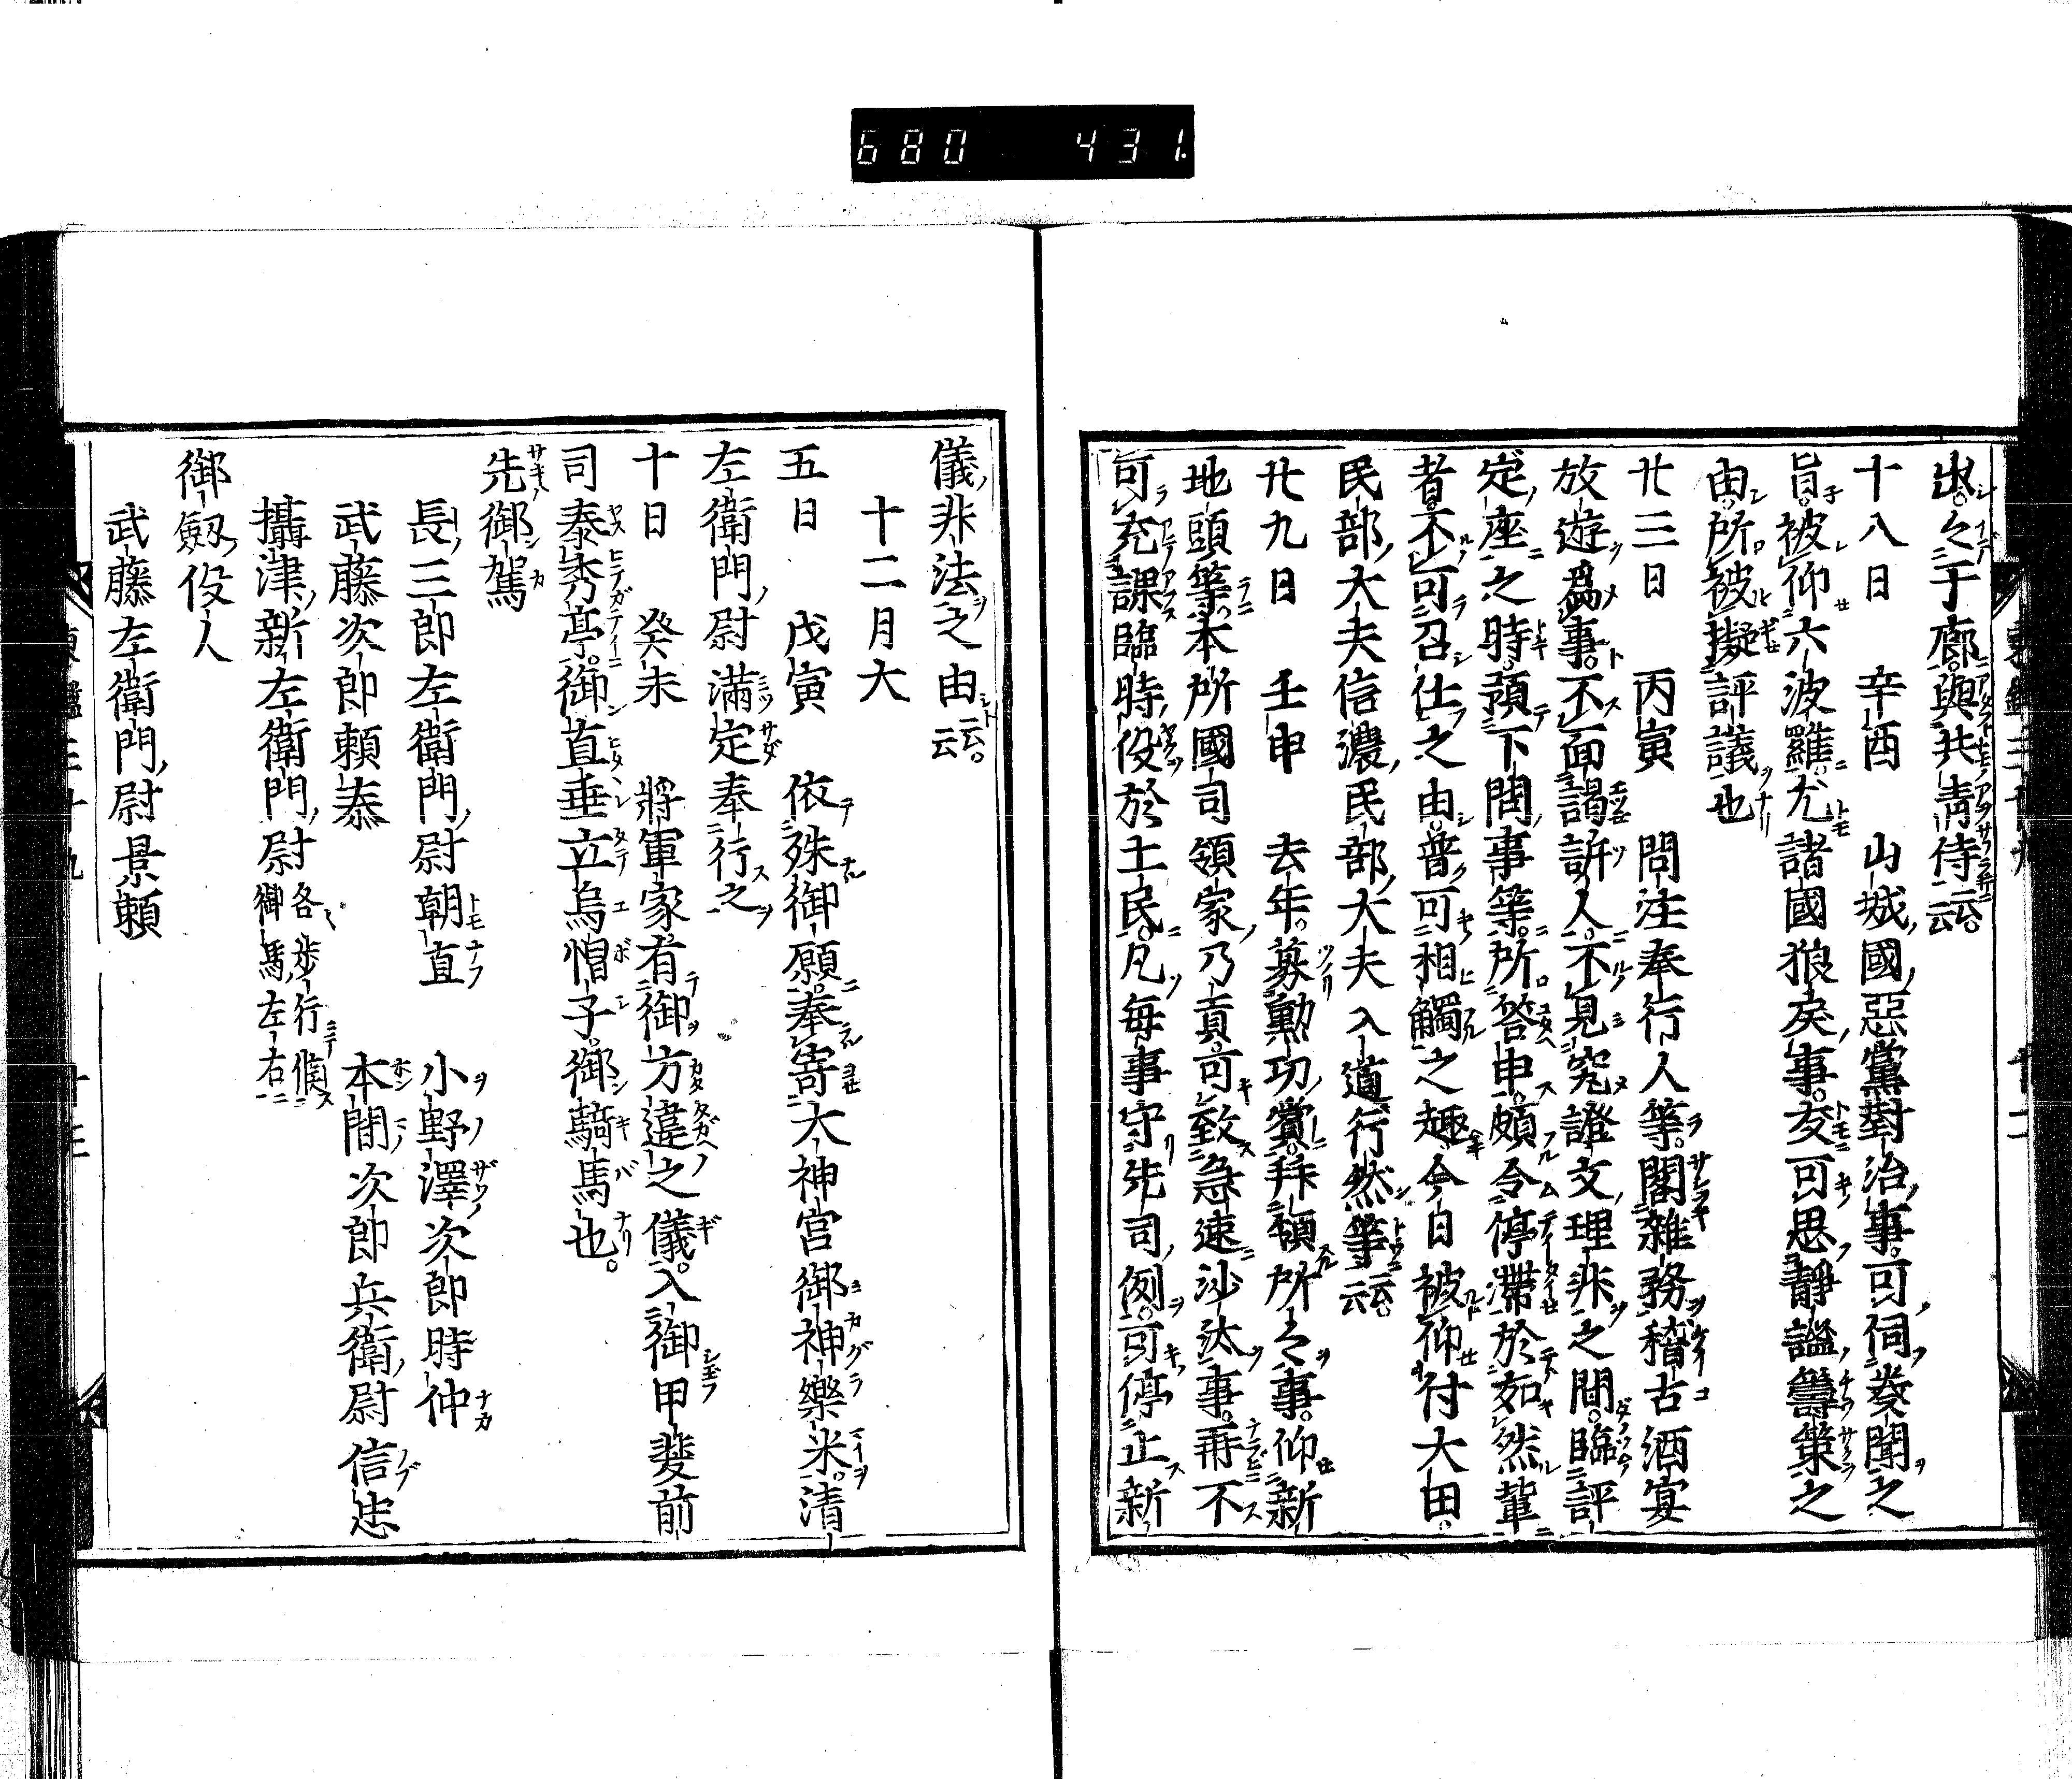 680 431.
出。之于廊。與共青侍云云。
十八日 辛酉 山城國惡黨對治事。可伺奏聞之
旨。被仰六波羅。尤諸國狼戻事。友可思靜謐籌策之
由。所被擬評議也
廿三日 丙寅 問注奉行人等。閣雜務稽古酒宴
放遊爲事。不面謁訴人。不見究證文理非之間。臨評
定座之時。預下問事等。所答申。頗令停滯於如然輩
者。不可召仕之由。普可相觸之趣今日被仰付大田
民部大夫信濃民部大夫入道行然等云云。
廿九日 壬申 去年。募勳功賞。拜領所之事。仰新
地頭等。本所國司領家乃貢。可致急速沙汰事。再不
可充課臨時役於土民。凡毎事守先司例。可停止新
儀非法之由云云。
十二月大
五日 戊寅 依殊御願。奉寄大神宮御神樂米。清
左衛門尉滿定奉行之
十日 癸未 將軍家有御方違之儀。入御甲斐前
司泰秀亭。御直垂立烏帽子。御騎馬也。
先御駕
長三郎左衛門尉朝直 小野澤次郎時仲
武藤次郎頼泰 本間次郎兵衛尉信忠
攝津新左衛門尉 各歩行候御馬左右
御劔役人
武藤左衛門尉景頼